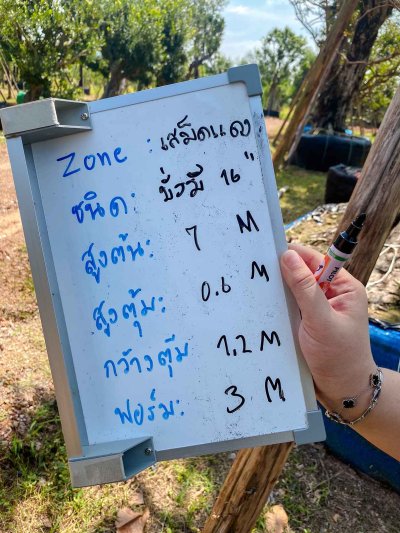 Zone : เสม็ดแดง
ชนิด: บั่งมี 16"
สูงต้น: 7 M
สูงตุ้ม: 0.6 M
กว้างตุ้ม 1.2 M
ฟอร์ม: 3 M